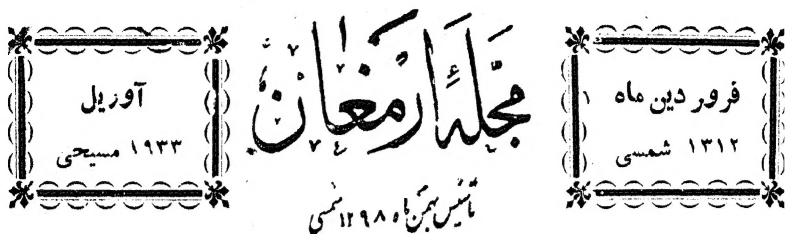 فروردین ماه
۱۳۱۲ شمسی
مجلهٔ ارمغان
تأسیس بهمن ماه ۱۲۹۸ شمسی
آوریل
۱۹۳۳ مسیحی